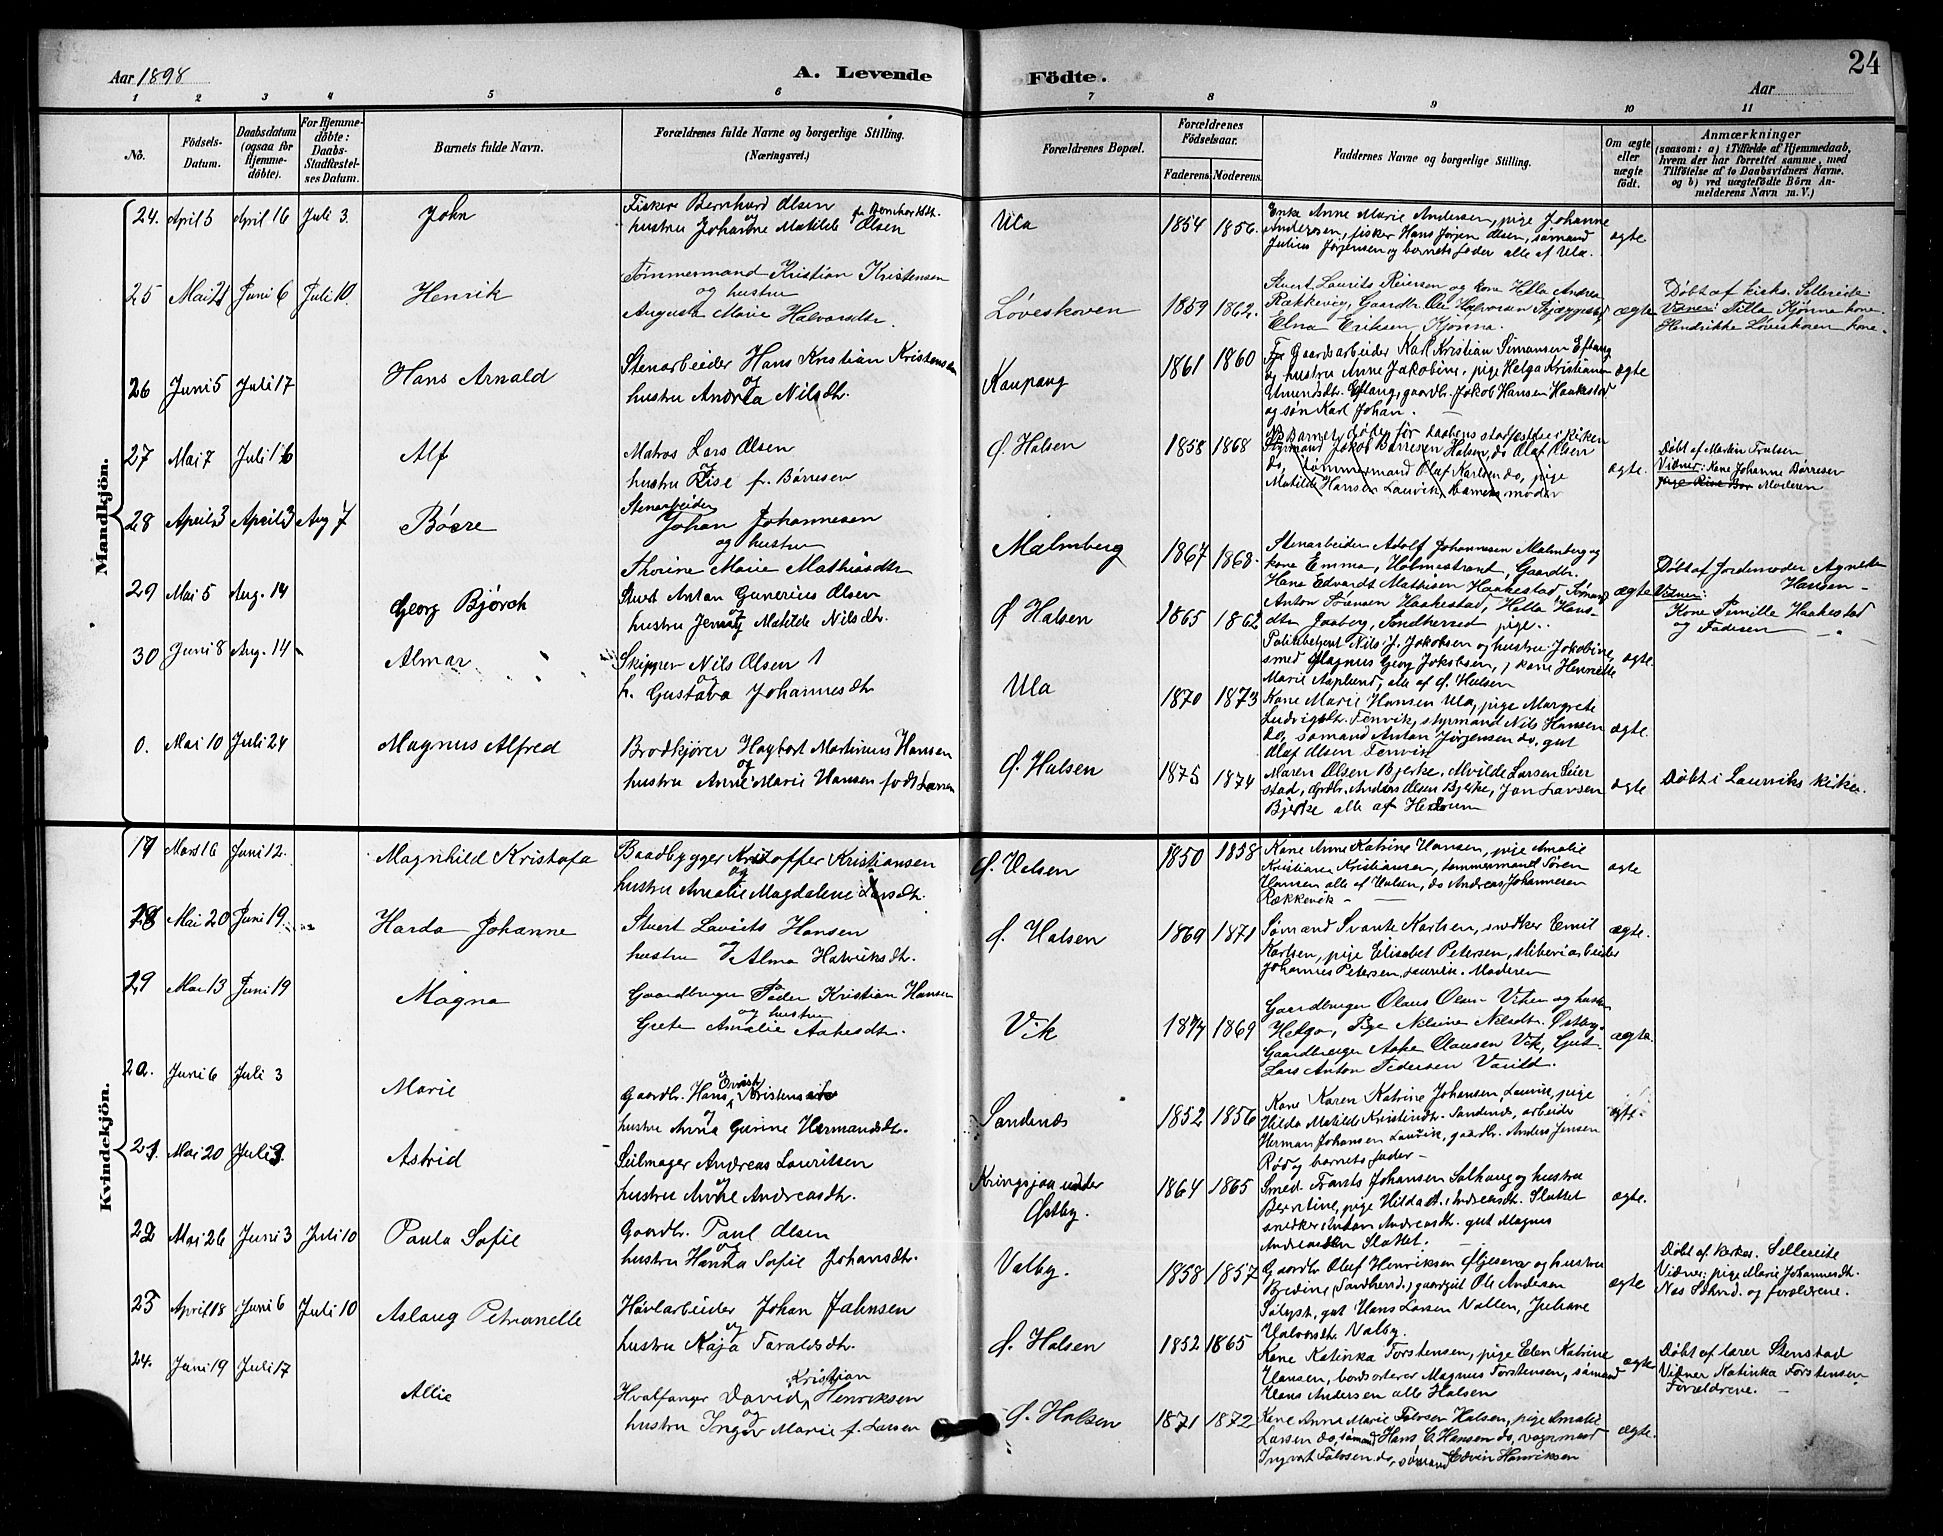 24
Aar 1898
A. Levende
Födte.
Aar
1 2 3 4 5 6 7 8 9 10 11
No.
Födsels-
Datum.
Daabsdatum
(ogsaa for
Hjemme-
döbte).
For Hjemme-
döbte:
Daabs-
Stadfæstel-
ses Datum.
Barnets fulde Navn.
Forældrenes fulde Navne og borgerlige Stilling.
(Næringsvei.)
Forældrenes Bopæl.
Forældrenes
Födselsaar.
Faderens. Moderens.
Faddernes Navne og borgerlige Stilling.
Om ægte
eller
uægte
födt.
Anmærkninger
(saasom: a) i Tilfælde af Hjemmedaab,
hvem der har forrettet samme, med
Tilföielse af to Daabsvidners Navne.
og b) ved uægtefödte Börn An-
melderens Navn m. V.)
Mandkjön.
24. April 5 April 16 Juli 3. John
Fisker Bernhard Olsen
og
hustru Johanne Matilde Olsen
Ula 1854 1856.
Enke Anne Marie Andersen, pige Johanne
Andersen, fisker Hans Jørgen Olsen, sømand
Julius Jørgensen og barnets fader alle af Ula.
ægte
25 Mai 21 Juni 6 Juli 10. Henrik
Tømmermand Kristian Kristensen
og hustru
Augusta Marie Halvorsdtr.
Løveskoven 1859 1862.
Stuert Laurits Reiersen og kone Hella Andrea
Rækkevig, Gaardbr. Ole Halvorsen
Elna Eriksen Kjønna.
ægte
Døbt af kirks. Sellereite
Vidner: Tilla Kjønna kone
Hendrikke Løveskoven kone
26 Juni 5 Juli 17 Hans Arnald
Stenarbeider Hans Kristian Kristensen
og
hustru Andrea Nilsdtr.
Kaupang 1861 1860
Gaardsarbeider Karl Kristian Simonsen Eftang
og hustru Anne Jakobine, pige Helga Kristiane
Eftang, gaardbr. Jakob Hansen Haakestad
og søn Karl Johan.
ægte
27 Mai 7 Juli 16 Alf
Matros Lars Olsen
og
hustru Rise f. Børresen
Ø. Halsen 1858 1868
Barnet døde før daabens stadfæstelse i kirken
Sømand Jakob Børresen Halsen, do Olaf Olsen
do, tømmermand Olaf Karlsen do, pige
Matilde Hansen Laurvik, Barnets moder
ægte.
Døbt af Martin Trulsen
Vidner: Kone Johanne Børresen
Moderen
28 April 3 April 3 Aug 7 Børre
Stenarbeider
Johan Johannesen
og hustru
Thorine Marie Mathiasdtr
Malmberg 1867 1868.
Stenarbeider Adolf Johannesen Malmberg og
kone Emma, Holmestrand, Gaardbr.
Hans Edvardt Mathisen Haakestad, Sømand
Anton Sørensen Haakestad, Hella Hans-
dtr Jaaberg, Sandherred pige.
ægte
Døbt af Jordemoder Agnete
Hansen
Vidner:
Kone Pernille Haakestad
og Faderen
29 Mai 5 Aug. 14 Georg Bjørch
Stuert Anton Gunerius Olsen
og
hustru Jenny Matilde Nilsdtr.
Ø Halsen 1865 1862
Politibetjent Nils J. Jakobsen og hustru Jakobine,
smed Magnus Georg Jakobsen, kone Henriette
Marie Asplund, alle af Ø. Halsen
ægte.
30 Juni 8 Aug. 14 Almar
Skipper Nils Olsen
og
h. Gustava Johannesdtr
Ula 1870 1873
Kone Marie Hansen Ula, pige Margrete
Ludvigsdtr. Fenvik, styrmand Nils Hansen
do, sømand Anton Jørgensen do, gut
Olaf Olsen Fenvik
ægte.
0. Mai 10 Juli 24 Magnus Alfred
Brødkjører Hagbart Martinius Hansen
og
hustru Anne Marie Hansen født Larsen
Ø. Halsen 1875 1874
Maren Olsen Bjerke, Alvilde Larsen Seier
stad, grdbr. Anders Olsen Bjerke, Jon Larsen
Bjerke alle af Hedrum
ægte
Døbt i Laurviks kirke.
Kvindekjön.
17 Mars 16 Juni 12. Magnhild Kristofa
Baadbygger Kristoffer Kristiansen
og
hustru Amalie Magdalene Larsdtr.
Ø. Halsen 1850 1858
Kone Anne Katrine Hansen, pige Amalie
Kristiane Kristiansen, tømmermand Søren
Hansen alle af Halsen, do Andreas Johannesen
Rækkevik
ægte
18 Mai 20 Juni 19. Harda Johanne
Stuert Laurits Hansen
hustru og Alma Henriksdtr.
Ø. Halsen 1869 1871
Sømand Svante Karlsen, snedker Emil
Karlsen, pige Elisabet Petersen, sliberiarbeider
Johannes Petersen Laurvik. Moderen
ægte.
19 Mai 13 Juni 19 Magna
Gaardbruger Peder Kristian Hansen
og hustru
Grete Amalie Aakesdtr.
Vik 1874 1869
Gaardbruger Olaus Olsen Viken og hustru
Helga, Pige Nilsine Nilsdtr. Østby
Gaardbruger Aake Olausen Vik, Gut
Lars Anton Pedersen Varild.
ægte.
20. Juni 6 Juli 3 Marie
Gaardbr. Hans Evart Kristensen
og
hustru Anna Gurine Hermansdtr.
Sandenæs 1852 1856
Kone Karen Katrine Johansen, Laurvik, pige
Hilda Matilde Kristindtr. Sandenæs, arbeider
Herman Johansen Laurvik, gaardbr. Anders Jensen
Rød og barnets fader
ægte
21. Mai 20 Juli 3. Astrid
Seilmager Andreas Lauritsen
og
hustru Anne Andreasdtr.
Kringsjaa under
Østby. 1864 1865
Smed Frants Johansen Solhaug og hustru
Berntine, pige Hilda A. Andreasdtr. Slottet
snedker Anton Andreasdtr. gut Magnus
Andreassen Slottet.
ægte.
22 Mai 26 Juni 3 Juli 10 Paula Sofie
Gaardbr. Paul Olsen
og
hustru Hanna Sofie Johansdtr.
Valby. 1858 1857
Gaardbr Oluf Henriksen Gjesene og hustru
Bredine, (Sandherred,) gaardgut Ole Andersen
Sølyst, gut Hans Larsen Vallen, Juliane
Halvorsdtr. Valby.
ægte
Døbt af kirkes. Sellereite
Vidner: pige Marie Johannesdtr.
Næs Sdhrd. og forældrene.
23 April 18 Juni 6 Juli 10 Aslaug Petrianelle
Høvlarbeider Johan Jahnsen
og
hustru Kaja Taraldsdtr.
Ø. Halsen 1852 1865
Kone Katinka Torstensen, pige Elen Katrine
Hansen, bordsorterer Magnus Torstensen, sømand
Hans Andersen alle Halsen
ægte
Døbt af lærer Stenstad
Vidner Katinka Torstensen
Forældrene.
24. Juni 19 Juli 17 Allie
Hvalfanger David Kristian Henriksen
og
hustru Inger Marie f. Larsen
Ø. Halsen 1871 1872
Kone Anne Marie Halsen, pige Amalie
Larsen do, sømand Hans C. Hansen do, vognmand
Ingvart do, sømand Edvin Henriksen
ægte.